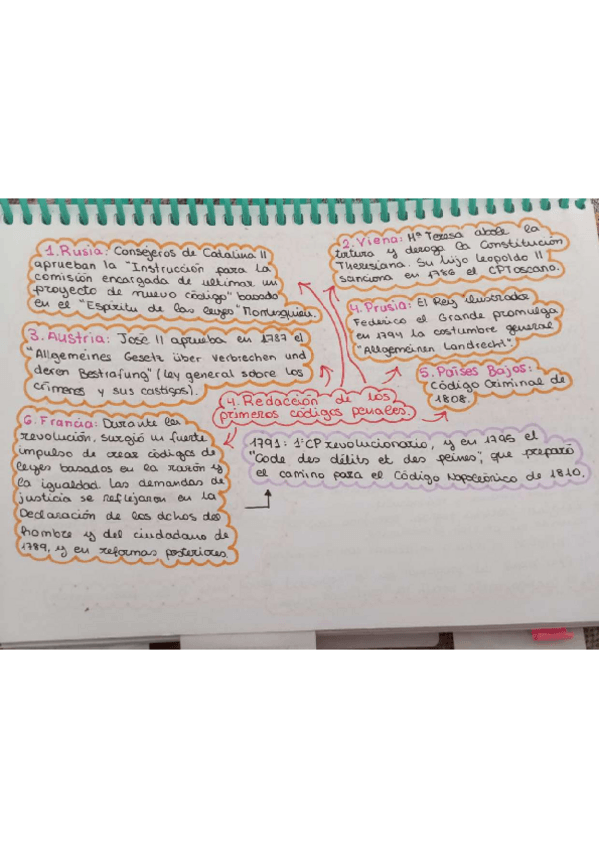 1. Rusia: Consejeros de Catalina II
aprueban la "Instrucción para la
comisión encargada de ultimar un
proyecto de nuevo código" basado
en el "Espíritu de las leyes" Montesquieu.
2. Viena: Mª Teresa abole la
tortura y deroga la Constitución
Theresiana. Su hijo Leopoldo II
sanciona en 1786 el CPToscano.
3. Austria: José II aprueba en 1787 el
"Allgemeines Gesetz über Verbrechen und
deren Bestrafung" (ley general sobre los
crímenes y sus castigos).
4. Prusia: El Rey ilustrado
Federico el Grande promulga
en 1794 la costumbre general
"Allgemeinen Landrecht".
5. Países Bajos:
Código Criminal de
1808.
4. Redacción de los
primeros códigos penales.
6. Francia: Durante la
revolución, surgió un fuerte
impulso de crear códigos de
leyes basados en la razón y
la igualdad. Las demandas de
justicia se reflejaron en la
Declaración de los dchos del
hombre y del ciudadano de
1789, y en reformas posteriores
1791: 1ºCP revolucionario, y en 1795 el
"Code des délits et des peines", que preparó
el camino para el Código Napoleónico de 1810.